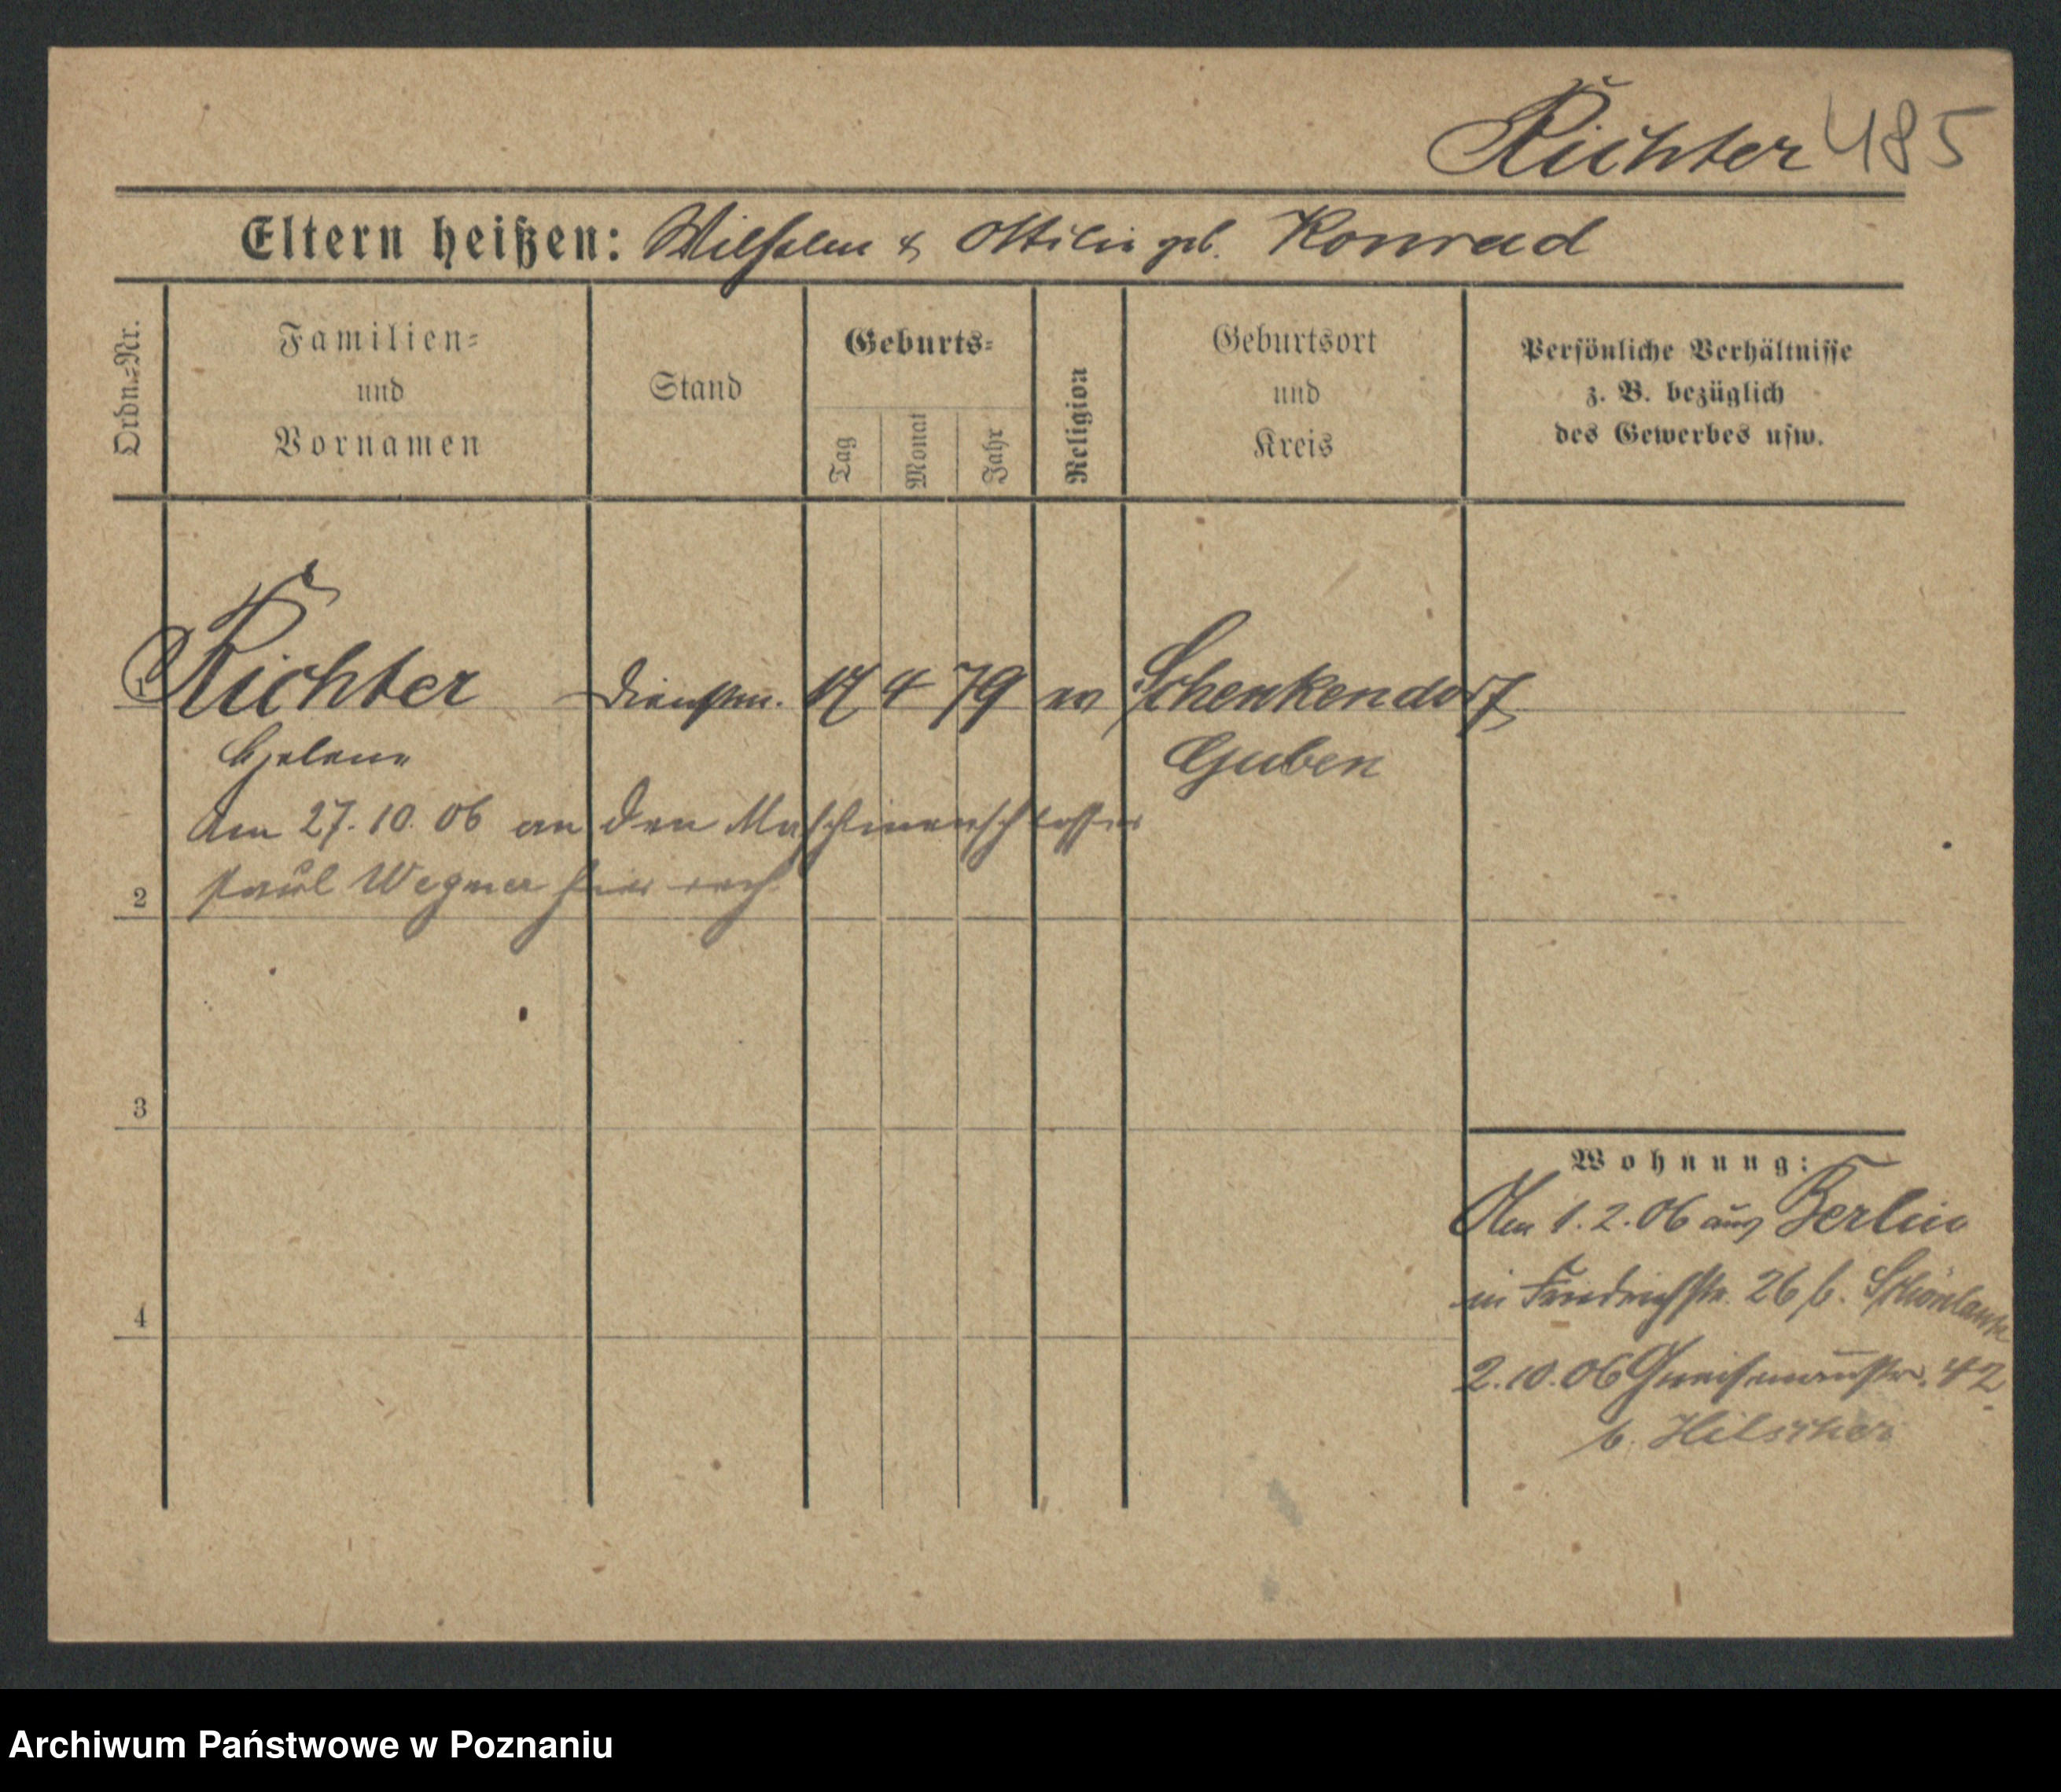 Richter 485
Eltern heißen: Wilhelm & Ottilie geb. Konrad
Ordn.-Nr.
Familien-
und
Vornamen
Stand
Geburts-
Tag
Monat
Jahr
Religion
Geburtsort
und
Kreis
Persönliche Verhältnisse
z. B. bezüglich
des Gewerbes usw.
1 Richter Dienstm. 17 4 79 ev Schenkendorf
Helene Guben
Am 27.10.06 an den Maschinenschlosser
2 Paul Wegner hier verh
3
4
Wohnung:
Am 1.2.06 aus Berlin
in Friedrichstr. 26 b. Schönlank
2.10.06 Gneisenaustr. 42
b. Hilscher
Archiwum Państwowe w Poznaniu